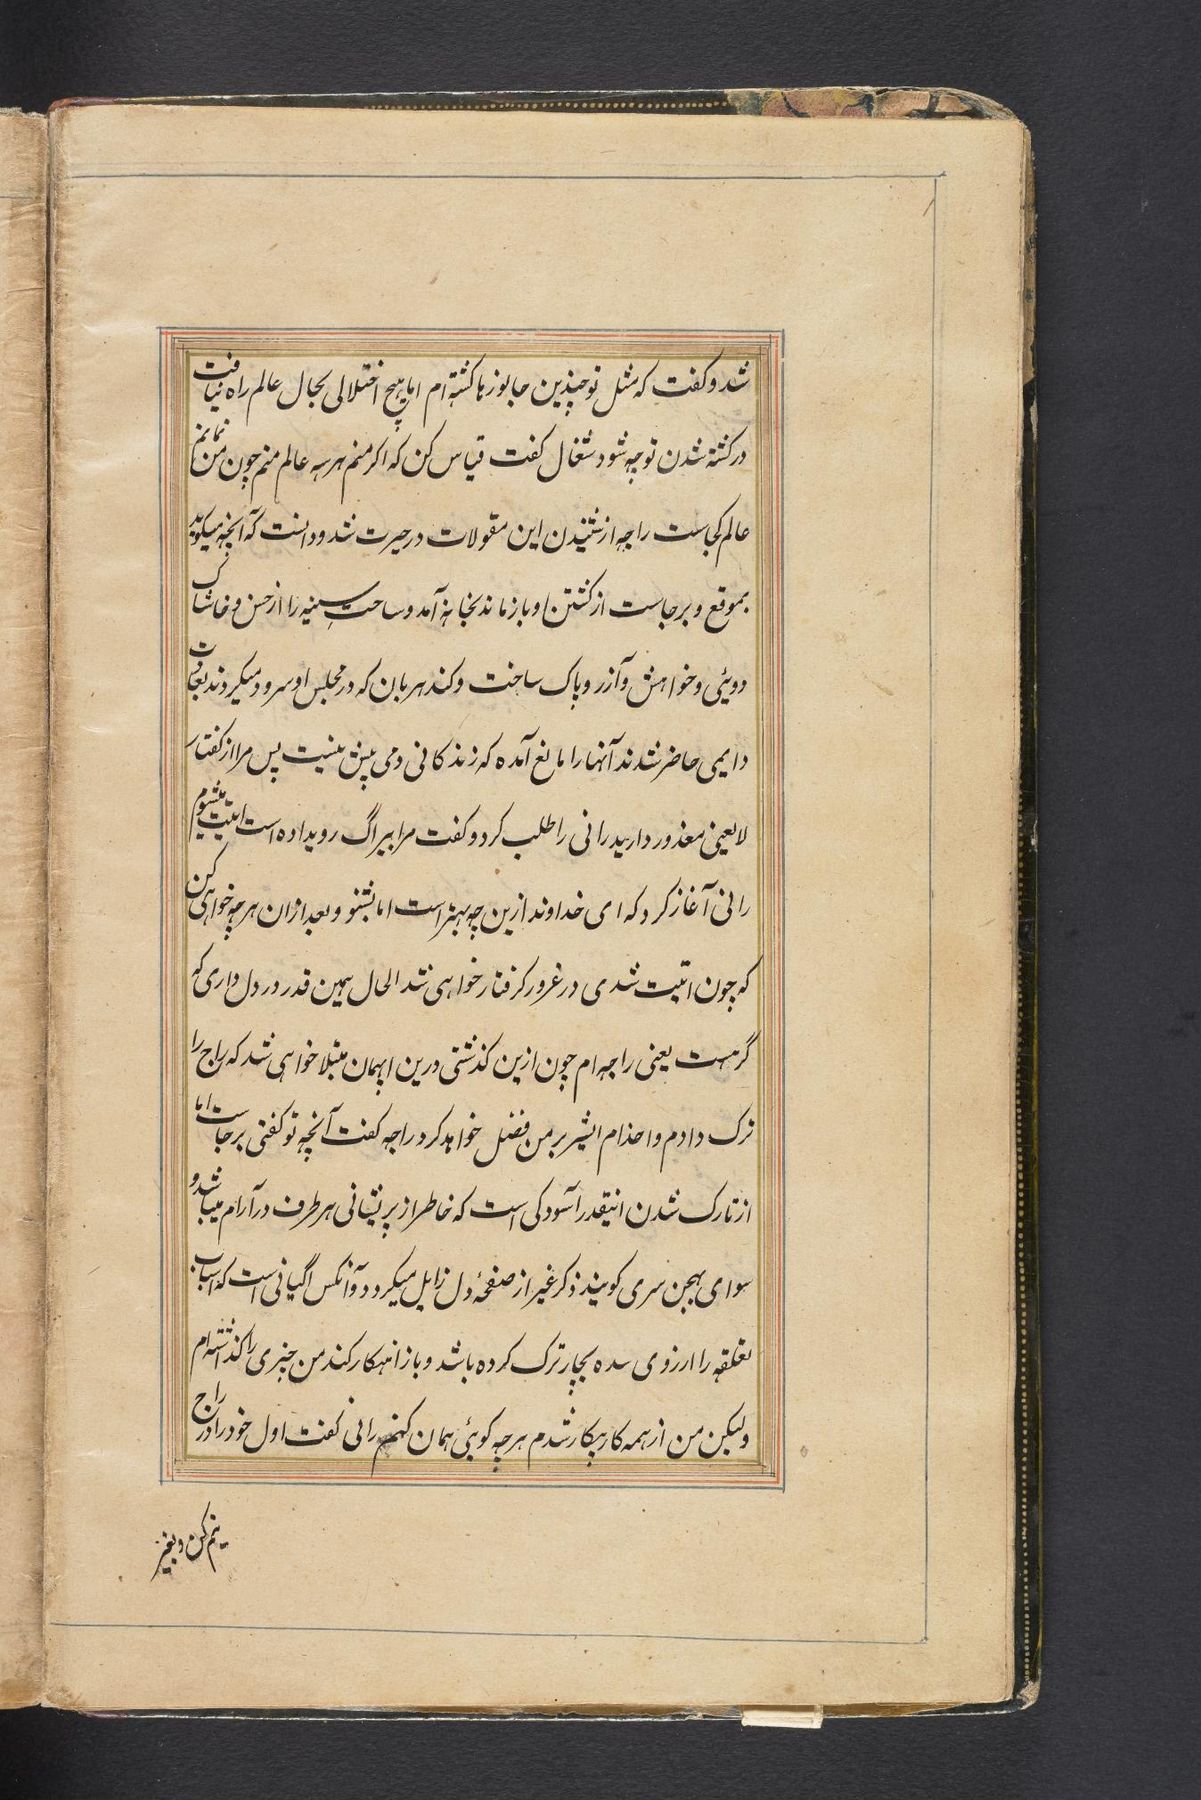 شد و کفت که مثل تو چندین جانورها کشته ام اما هیچ اختلالی بحال عالم راه نیافت
در کشته شدن تو چه شود شغال کفت قیاس کن که اکر منم هرسه عالم منم چون من نمانم
عالم کجاست راجه از شنیدن این مقولات در حیرت شد و دانست که آنچه میکوید
بموقع و برجاست از کشتن او باز ماند بخانه آمد و ساحت سینه را از خس و خاشاک
دوئی و خواهش و آز رو پاک ساخت و کندهربان که در مجلس او سرود میکردند بعادت
دایمی حاضر شدند آنها را مانع آمده که زندکانی دمی بیش نیست پس مرا از کفتار
لایعنی معذور دارید رانی را طلب کرد و کفت مرا بیراگ رویداده است اتیت میشوم
رانی آغاز کرد که ای خداوند ازین چه بهتر است اما بشنو و بعد ازان هرچه خواهی کن
که چون اتیت شدی در غرور کرفتار خواهی شد الحال همین قدر در دل داری که
گرهست یعنی راجه ام چون ازین کذشتی درین ابهمان مبتلا خواهی شد که راج را
ترک دادم و احذام ایشر بر من فضل خواهد کرد راجه کفت آنچه تو کفتی برجاست اما
از تارک شدن اینقدر آسودکی است که خاطر از پریشانی هر طرف در آرام میباشد و
سوای بهجن سری کوبند ذکر غیر از صفحهٔ دل زایل میکردد و آنکس اگیانی است که اسباب
تعلقه را از روی سده بچار ترک کرده باشد و باز انهکار کند من چیزی را کذاشته ام
ولیکن من از همه کار بیکار شدم هرچه کوئی همان کنم رانی کفت اول خود را در راج